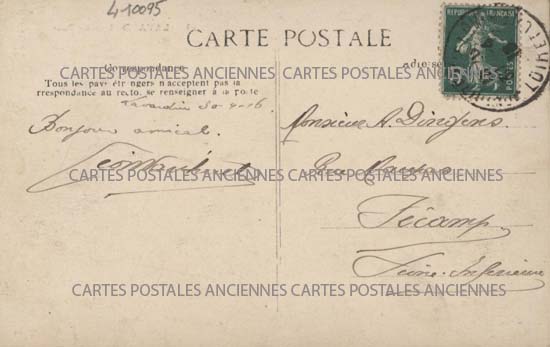 410095
CARTE POSTALE
Correspondance
Tous les pays étrangers n'acceptent pas la
correspondance au recto, se renseigner à la poste
Lavardin 30-4-16
Bonjour amical
Adresse
RÉPUBLIQUE FRANÇAISE
5c
POSTES
Monsieur A. Dingens
Rue
Fécamp
Seine-Inférieure
CARTES POSTALES ANCIENNES CARTES POSTALES ANCIENNES
CARTES POSTALES ANCIENNES CARTES POSTALES ANCIENNES
CARTES POSTALES ANCIENNES CARTES POSTALES ANCIENNES